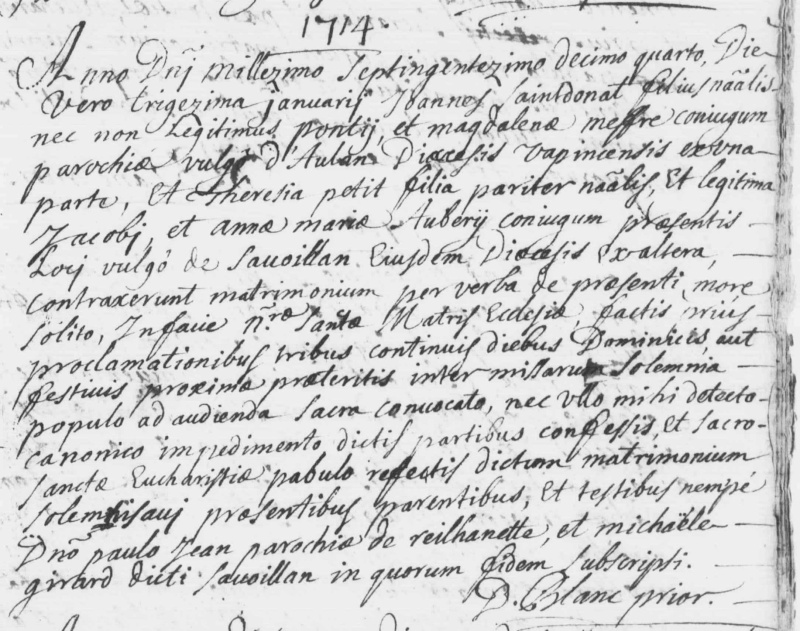 1714.
Anno Dnj Millezimo Septingentezimo decimo quarto, Die
Vero trigezima januarij Joannes Saintdonat filius nãalis
nec non Legitimus pontij, et magdalenæ meffre coniugum
parochiæ vulgò d'Aulan Diœcesis Vapincensis ex vna
parte, Et Theresia petit filia pariter nãalis, Et legitima
Jacobj, et annæ mariæ Auberij coniugum præsentis
Locij vulgó de Savoillan Eiusdem Diœcesis Ex altera,
contraxerunt matrimonium per verba de præsenti, more
solito, In facie nræ Sanctæ Matris Ecclesiæ factis prius
proclamationibus tribus continuis diebus Dominicis, aut
festivis proximæ præteritis inter missarum Solemnia
populo ad audienda Sacra convocato, nec vllo mihi detecto
canonico impedimento dictis partibus confessis, et Sacro
Sanctæ Eucharistiæ pabulo refectis dictum matrimonium
solemnisavj præsentibus parentibus, Et testibus nempé
Dnõ paulo Jean parochiæ de reilhanette, et michaële
girard dicti Savoillan in quorum fidem Subscripti.
D. Blanc prior.